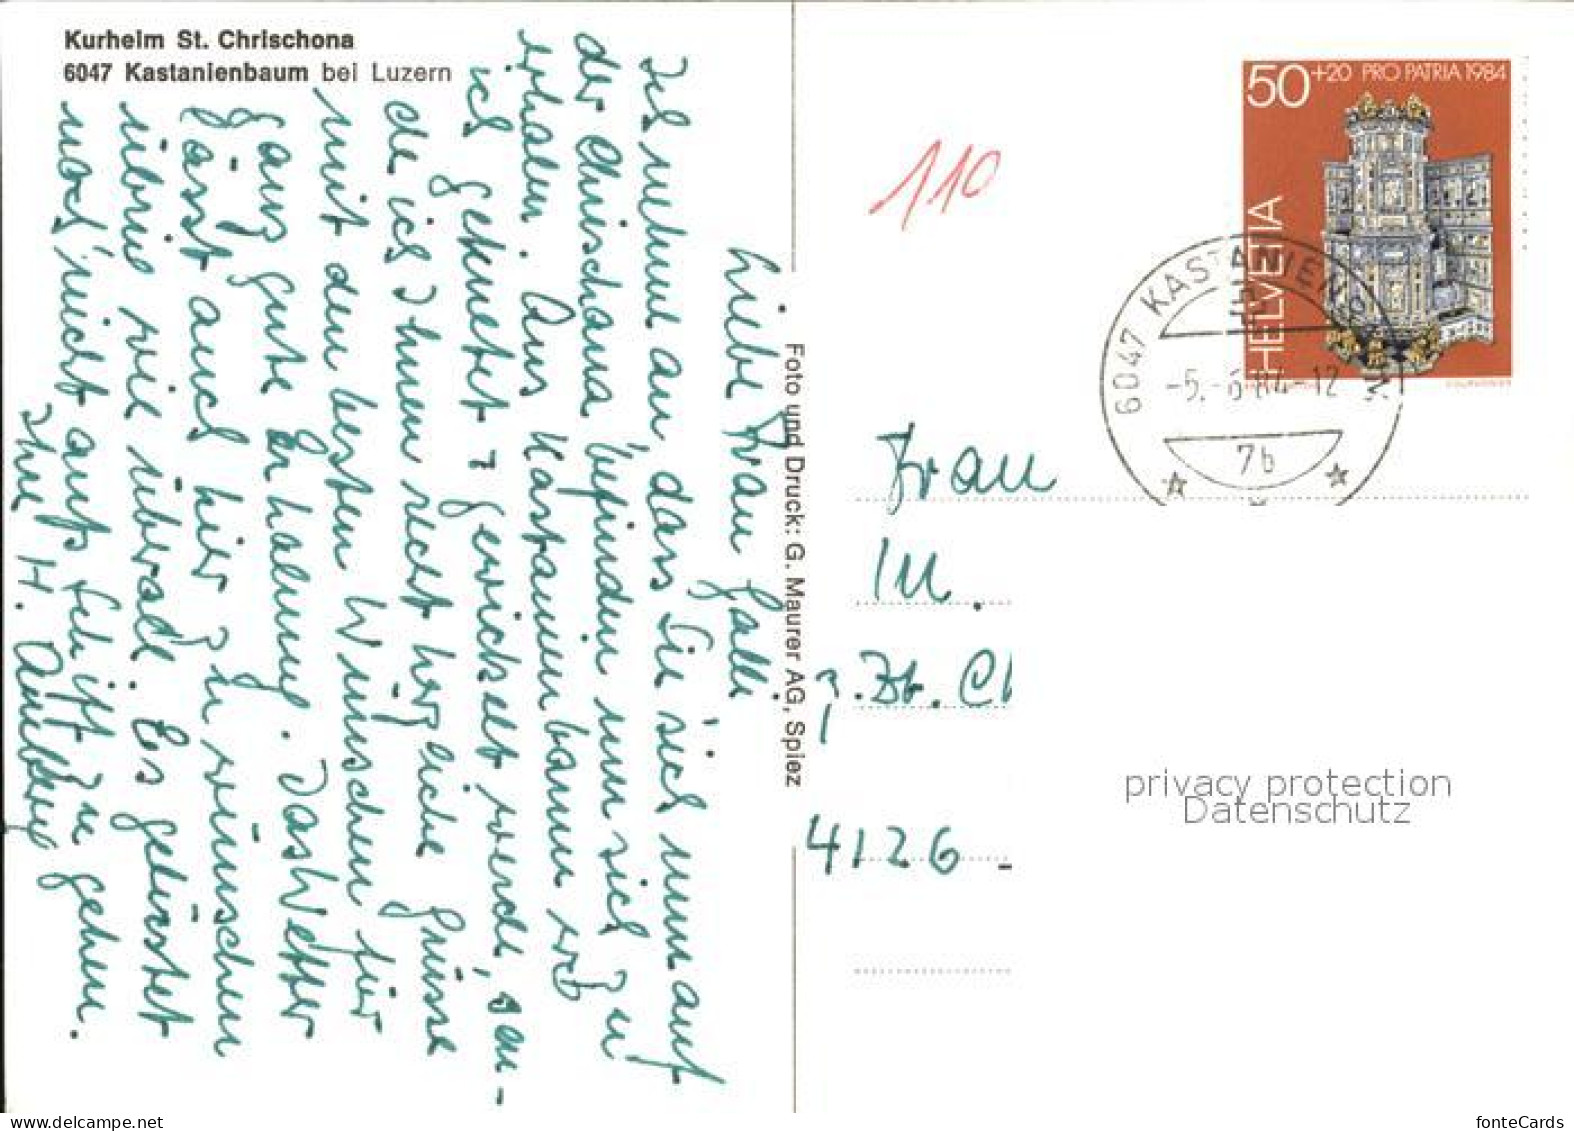 Kurheim St. Chrischona
6047 Kastanienbaum bei Luzern
Liebe Frau Galli
Ich nehme an, dass Sie sich nun auf
der Chrischona befinden um sich zu
erholen. Aus Kastanienbaum wo
ich geknetet & gewickelt werde, sen-
de ich Ihnen recht herzliche Grüsse
mit den besten Wünschen für
ganz gute Erholung. Das Wetter
lässt auch hier zu wünschen
übrig wie überall. Es gelüstet
noch nicht aufs Schiff zu gehen.
Ihre H.
Foto und Druck: G. Maurer AG, Spiez
110
50+20 PRO PATRIA 1984
HELVETIA
6047 KASTANIENBAUM
-5.-6.84-12
7b
Frau
M.
z. Zt. Ch
4126 -
privacy protection
Datenschutz
www.delcampe.net
fonteCards